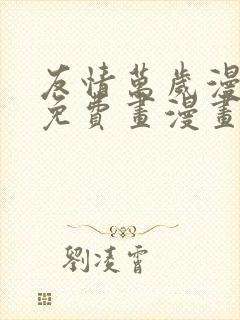 友情萬歲漫
免費畫漫畫
劉凌霄